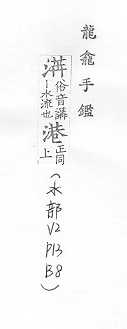 龍龕手鑑
俗音講
水流也
港
正同
上
(水部
V2
P13
B8)